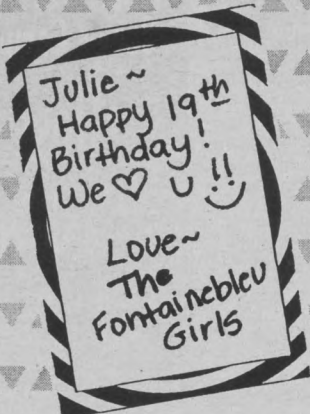 Julie~
Happy 19th
Birthday!
We ♡ U !!
Love~
The
Fontainebleu
Girls